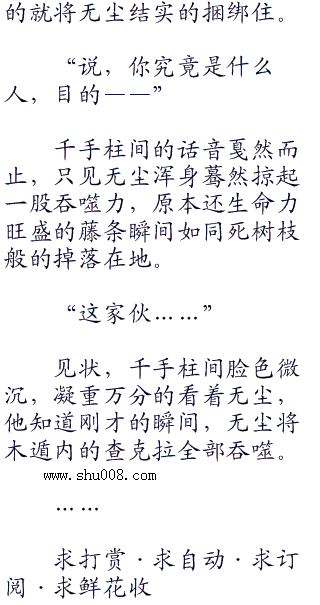 的就将无尘结实的捆绑住。
“说，你究竟是什么
人，目的——”
千手柱间的话音戛然而
止，只见无尘浑身蓦然掠起
一股吞噬力，原本还生命力
旺盛的藤条瞬间如同死树枝
般的掉落在地。
“这家伙……”
见状，千手柱间脸色微
沉，凝重万分的看着无尘，
他知道刚才的瞬间，无尘将
木遁内的查克拉全部吞噬。
www.shu008.com
……
求打赏·求自动·求订
阅·求鲜花收